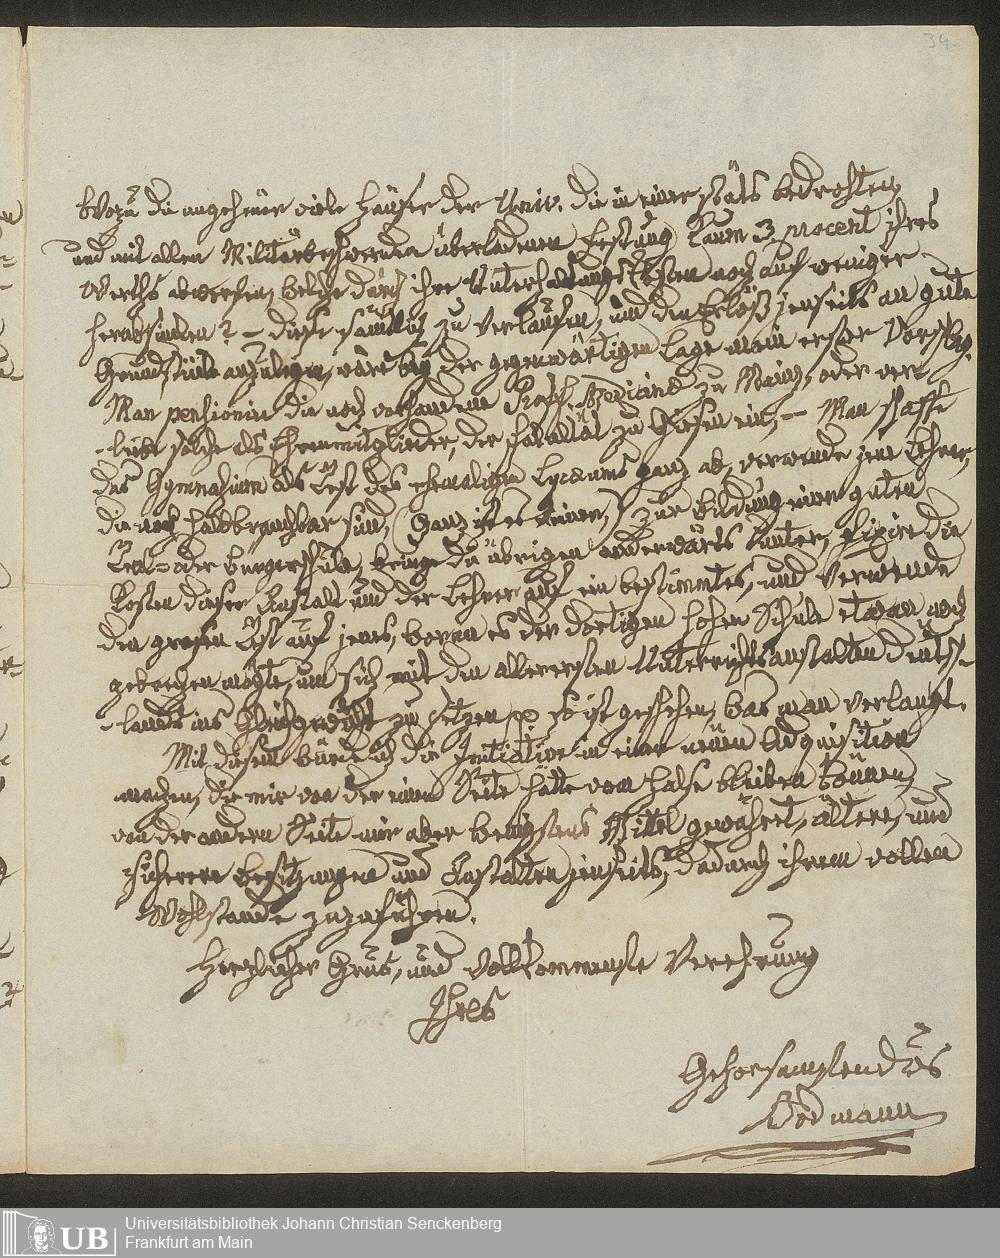 34.
Wozu die ungeheuer viele Häuser der Univ. die in einer stäts bedrohten,
und mit allen Militärbeschwerden überladenen Festung kaum 3 procent ihres
Werths abwerfen, welche durch ihre Unterhaltungs Kosten noch auf weniger
herabsinken? – diese sämtlich zu verkaufen, und den Erlöß jenseits an gute
Grundstücke anzulegen, wäre bey der gegenwärtigen Lage mein erster Vorschlag.
Man pensionire die noch vorhandene Proff. Medicinae zu Mainz, oder ver-
-leibe solche als Ehrenmitglieder, der Facultät zu Giesen ein, – Man schaffe
das Gymnasium als Rest des ehemaligen Lycaeums ganz ab, verwende jene Lehrer,
die noch halbbrauchbar sind, (ganz ist es keiner,) zur Bildung einer guten
Real= oder Bürgerschule, bringe die übrigen anderwärts unter, fixire die
Kosten dieser Anstalt und der Lehrer auf ein bestimmtes, und verwende
den grosen Rest auf jenes, woran es der dortigen hohen Schule etwan noch
gebrechen mögte, um sich mit den allerersten Unterrichtsanstalten Deutsch-
-lands ins Gleichgewicht zu setzen p so ist geschehen, was man verlangt.
Mit diesem würde ich die Initiative in einer neuen Adquisition
machen, die mir von der einen Seite hätte vom Halse bleiben können,
von der andern Seite mir aber wenigstens Mittel gewährt, ältere, und
sicherere Besitzungen und Anstalten jenseits, dadurch ihrem vollen
Wohlstande zuzuführen.
Herzlicher Grus, und vollkommenste Verehrung
Ihres
Gehorsamstendrs
Bodmann
UB Universitätsbibliothek Johann Christian Senckenberg
Frankfurt am Main